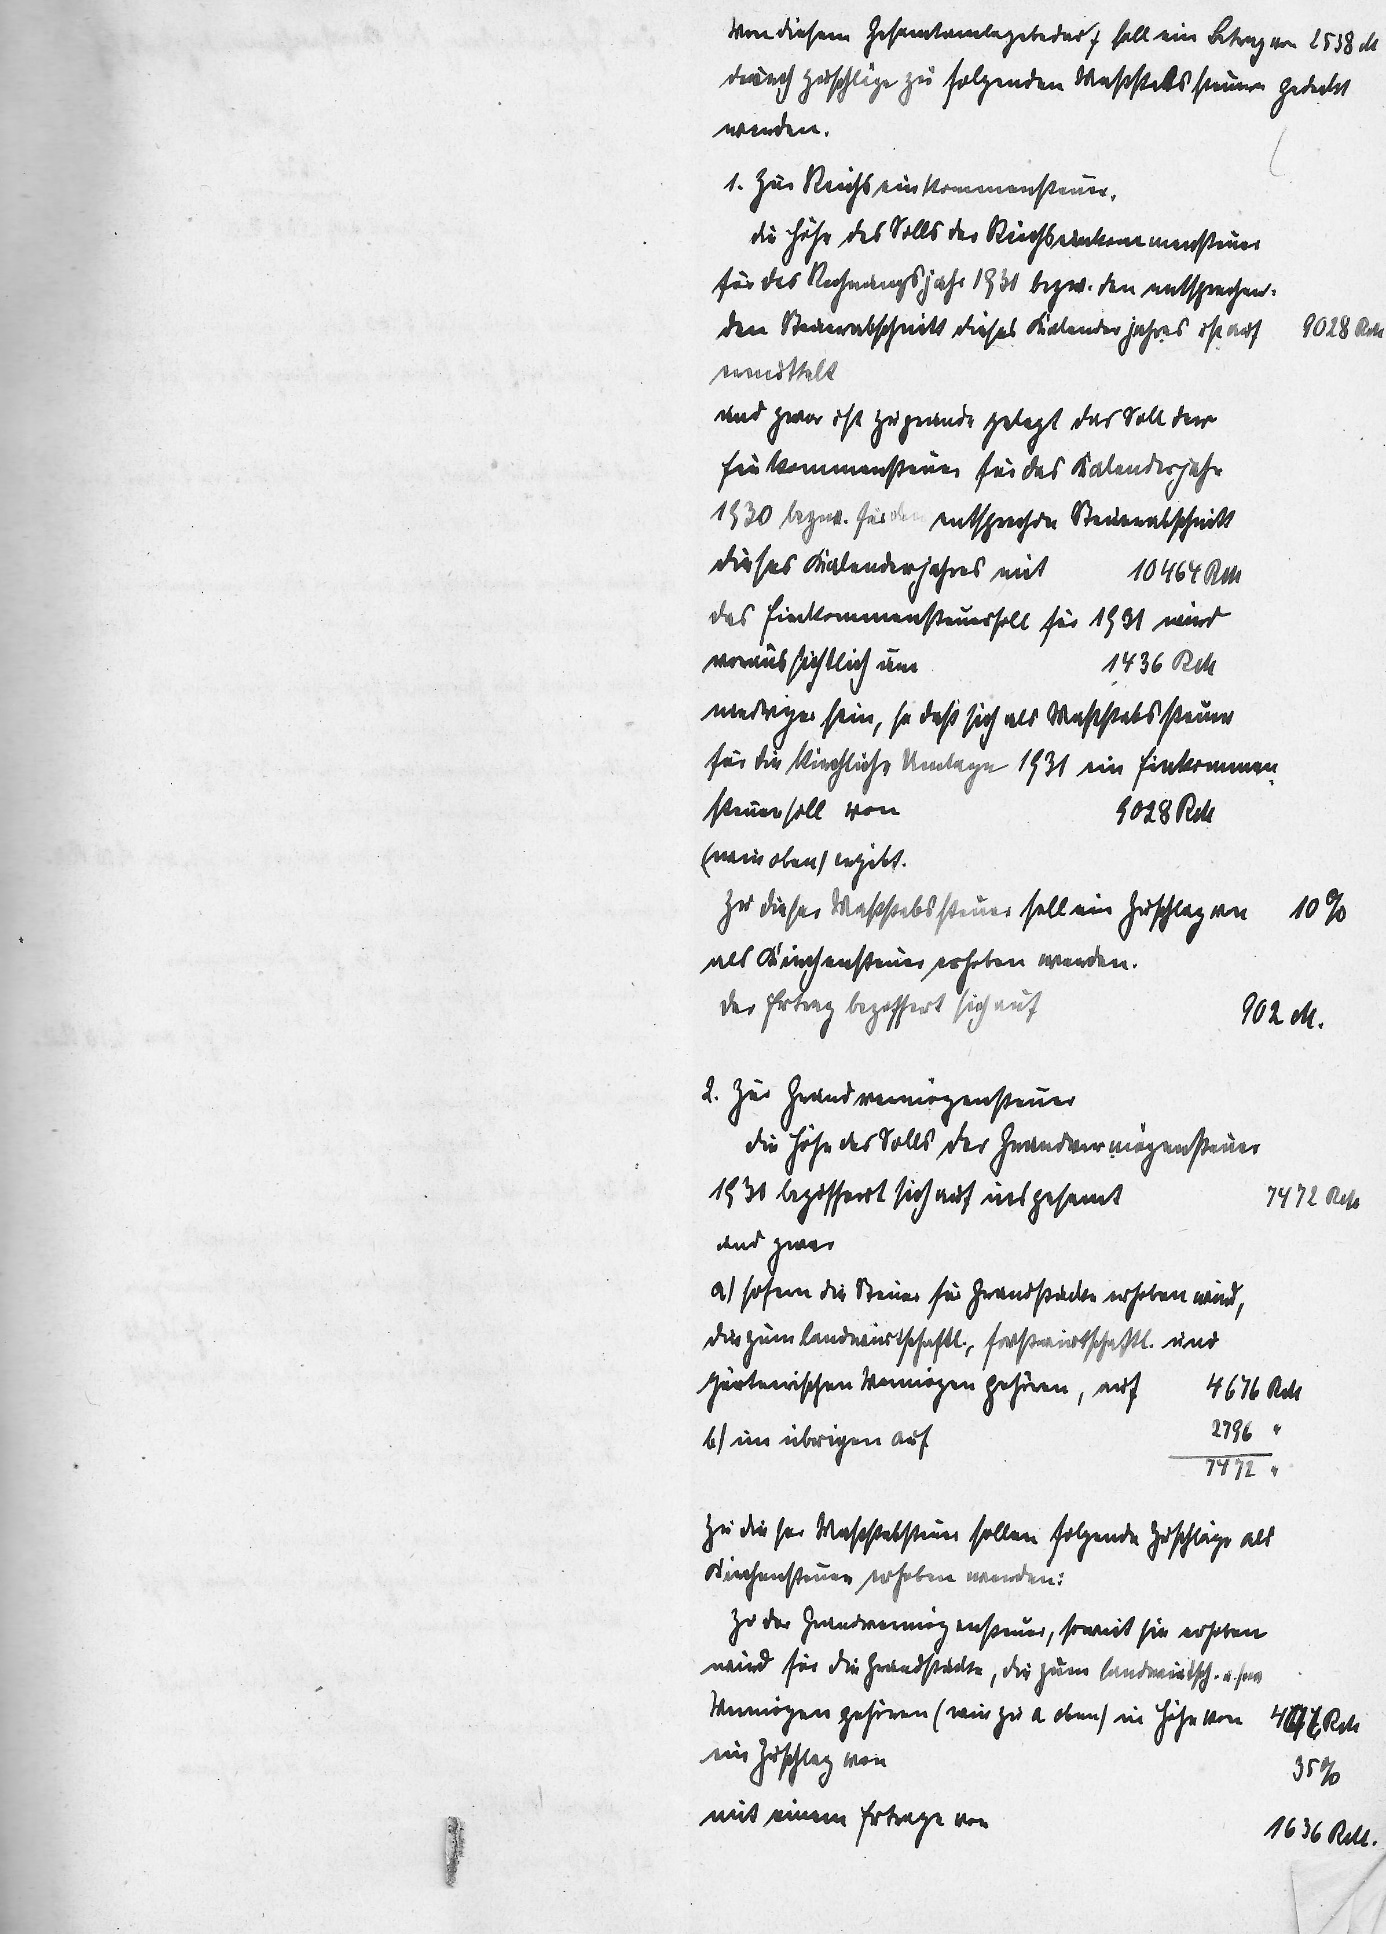 Von diesem Gesamtumlagebedarf soll ein Betrag von 2538 M
durch Zuschläge zu folgenden Maßstabssteuern gedeckt
werden.
1. Zur Reichseinkommensteuer.
Die Höhe des Solls der Reichseinkommensteuer
für das Rechnungsjahr 1931 bezw. den entsprechen-
den Steuerabschnitt dieses Kalenderjahres ist auf 9028 RM
ermittelt
und zwar ist zugrunde gelegt das Soll der
Einkommensteuer für das Kalenderjahr
1930 bezw. für den entsprechen Steuerabschnitt
dieses Kalenderjahres mit 10464 RM
das Einkommensteuersoll für 1931 wird
voraussichtlich um 1436 RM
niedriger sein, so daß sich als Maßstabssteuer
für die kirchliche Umlage 1931 ein Einkommen-
steuersoll von 9028 RM
(wie oben) ergibt.
Zu dieser Maßstabssteuer soll ein Zuschlag von 10 %
als Kirchensteuer erhoben werden.
Der Ertrag beziffert sich auf 902 M.
2. Zur Grundvermögensteuer
Die Höhe des Solls der Grundvermögensteuer
1930 beziffert sich auf insgesamt 7472 RM
und zwar
a) sofern die Steuer für Grundstücke erhoben wird,
die zum landwirtschaftl., forstwirtschaftl. und
gärtnerischen Vermögen gehören, auf 4676 RM
b) im übrigen auf 2796 "
7472 "
Zu dieser Maßstabsteuer sollen folgende Zuschläge als
Kirchensteuer erhoben werden:
Zu der Grundvermögensteuer, soweit sie erhoben
wird für die Grundstücke, die zum landwirtsch. u. s. w.
Vermögen gehören (wie zu a oben) in Höhe von 4676 RM
ein Zuschlag von 35 %
mit einem Ertrage von 1636 RM.